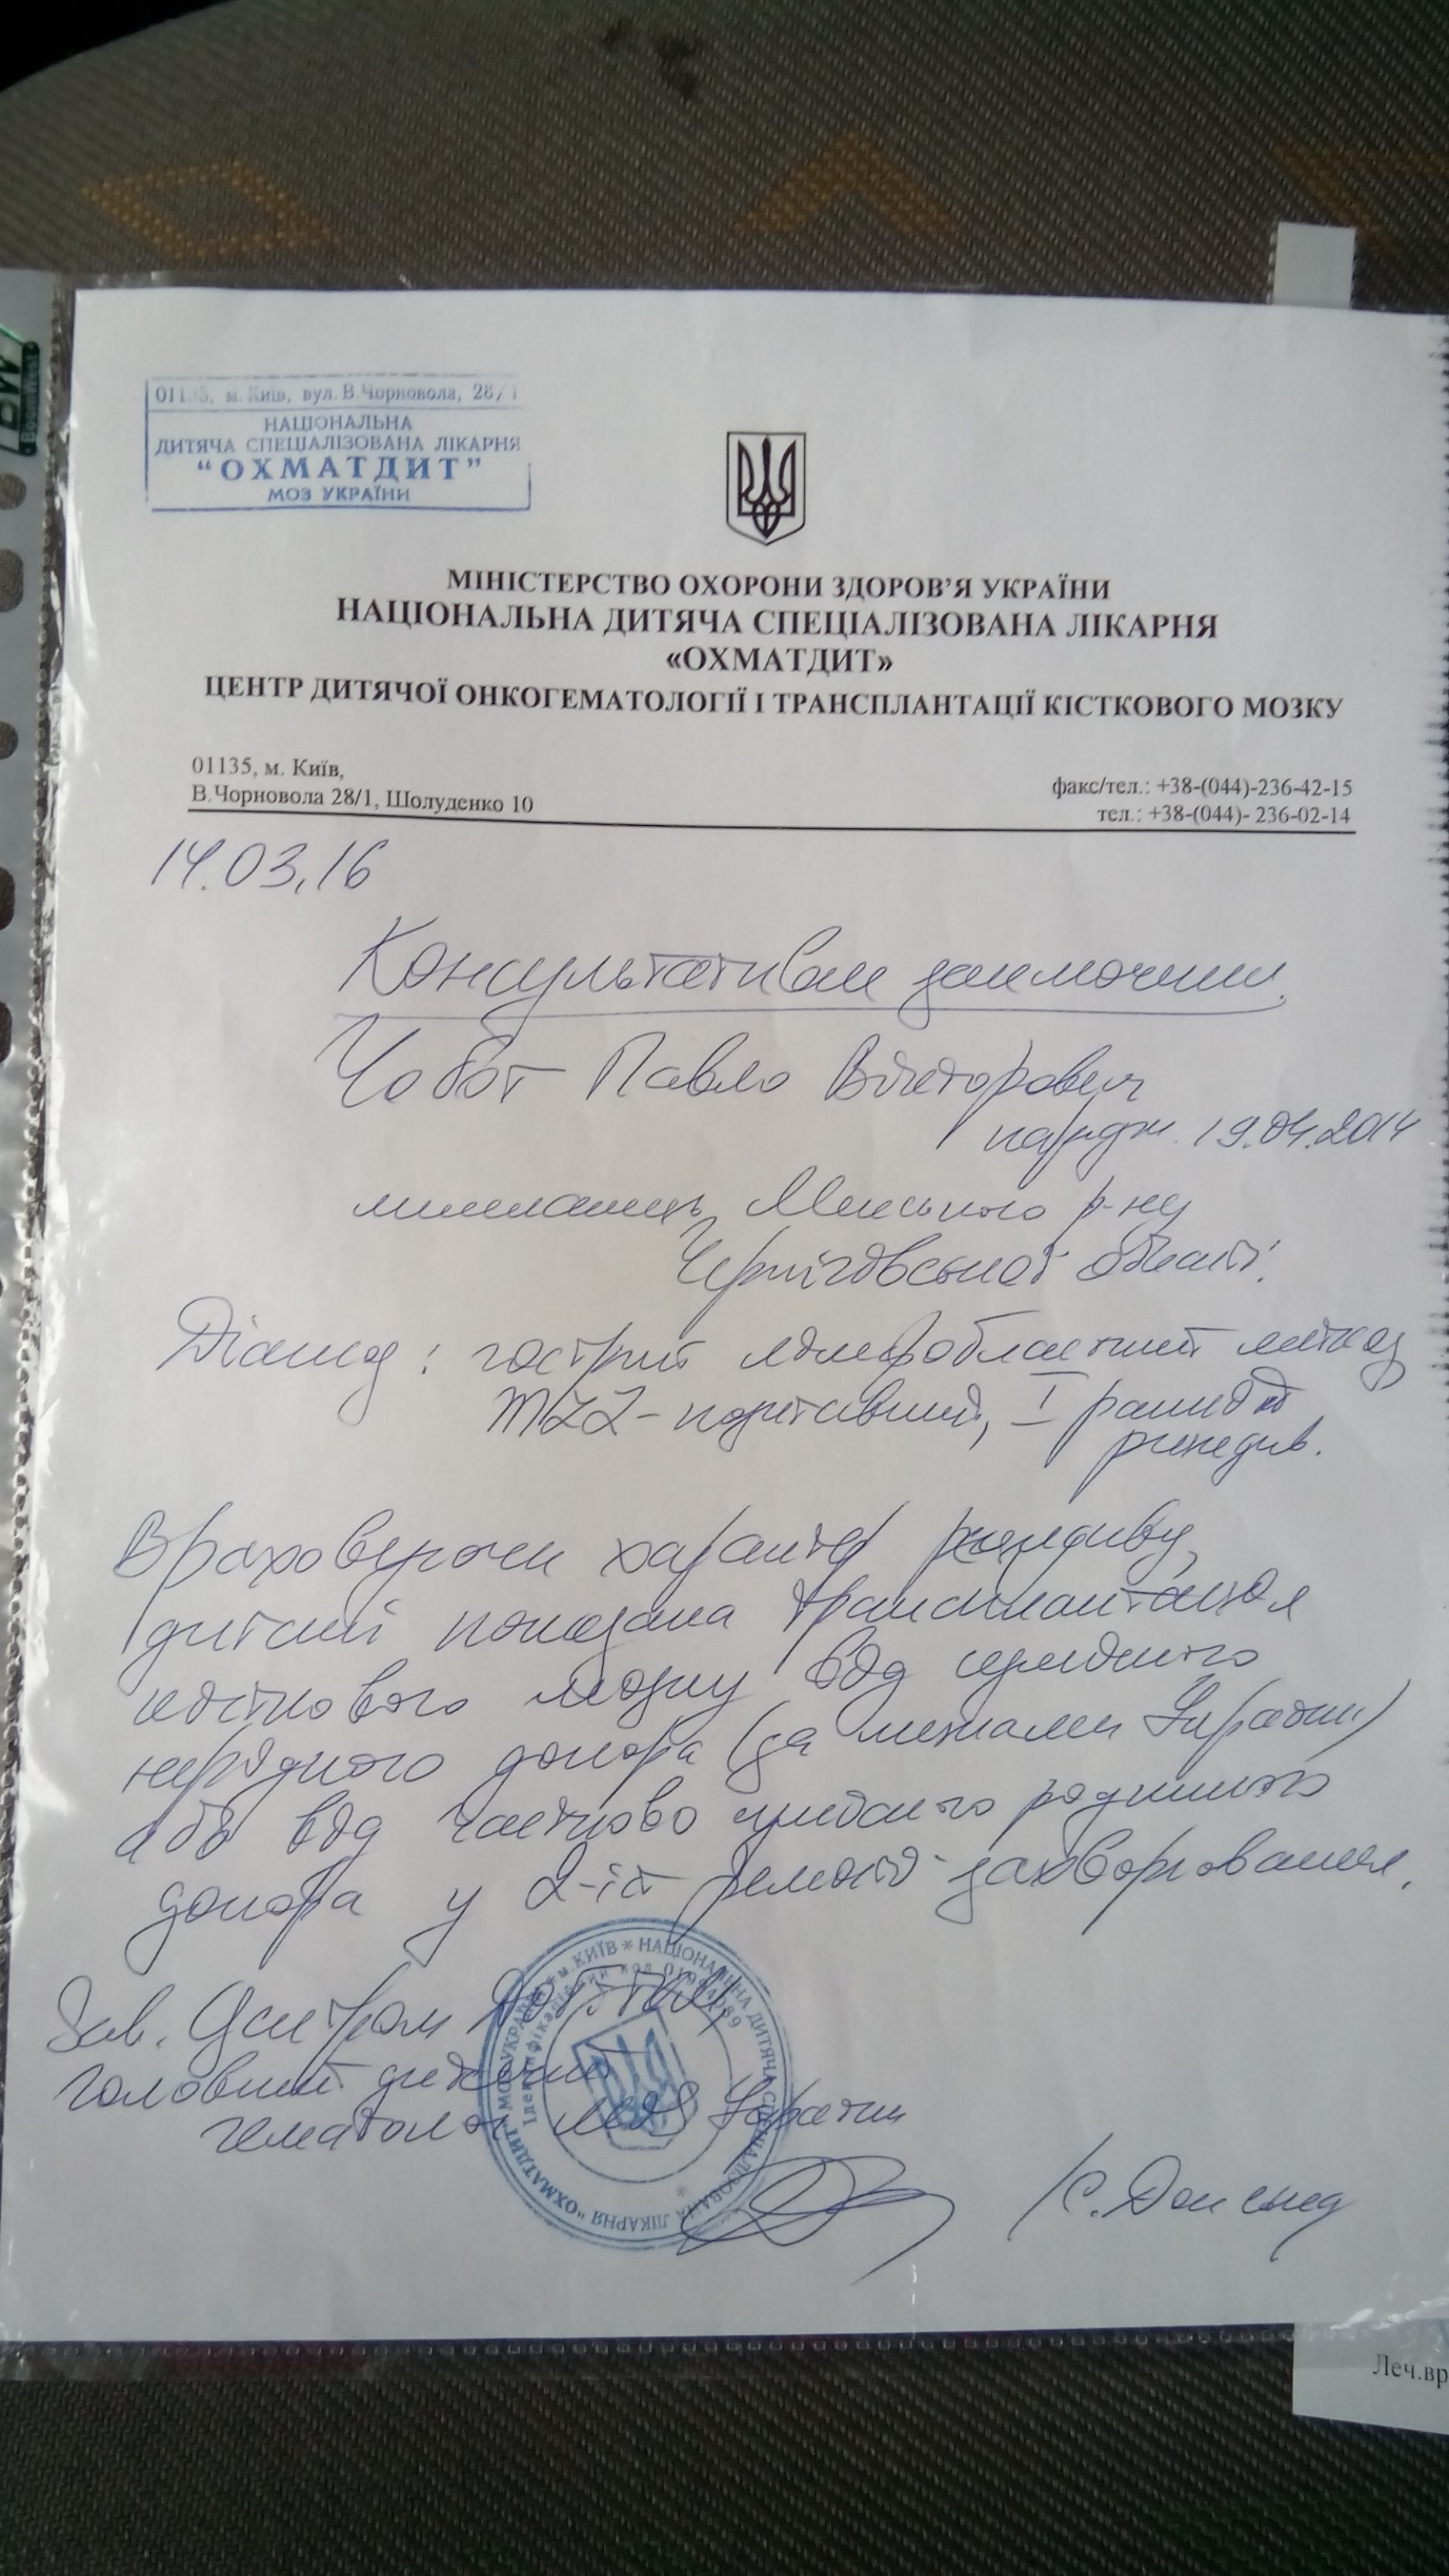 01135, м. Київ, вул. В.Чорновола, 28/1
НАЦІОНАЛЬНА
ДИТЯЧА СПЕЦІАЛІЗОВАНА ЛІКАРНЯ
“ОХМАТДИТ”
МОЗ УКРАЇНИ
МІНІСТЕРСТВО ОХОРОНИ ЗДОРОВ’Я УКРАЇНИ
НАЦІОНАЛЬНА ДИТЯЧА СПЕЦІАЛІЗОВАНА ЛІКАРНЯ
«ОХМАТДИТ»
ЦЕНТР ДИТЯЧОЇ ОНКОГЕМАТОЛОГІЇ І ТРАНСПЛАНТАЦІЇ КІСТКОВОГО МОЗКУ
01135, м. Київ,
В.Чорновола 28/1, Шолуденко 10
факс/тел.: +38-(044)-236-42-15
тел.: +38-(044)- 236-02-14
14.03.16
Консультативне заключення.
Чобот Павло Вікторович
народж. 19.04.2014
мешканець Менського р-ну
Чернігівської області.
Діагноз: гострий лімфобластний лейкоз
MLL-позитивний, I ранній
рецидив.
Враховуючи характер рецидиву,
дитині показана трансплантація
кісткового мозку від сумісного
нерідного донора (за межами України)
або від частково сумісного родинного
донора у 2-ій ремісії захворювання.
Зав. Центром
Головний дитячий
гематолог МОЗ України
С. Донська
МОЗ УКРАЇНИ * м.КИЇВ * НАЦІОНАЛЬНА ДИТЯЧА СПЕЦІАЛІЗОВАНА ЛІКАРНЯ "ОХМАТДИТ"
Ідентифікаційний код
Леч.вр